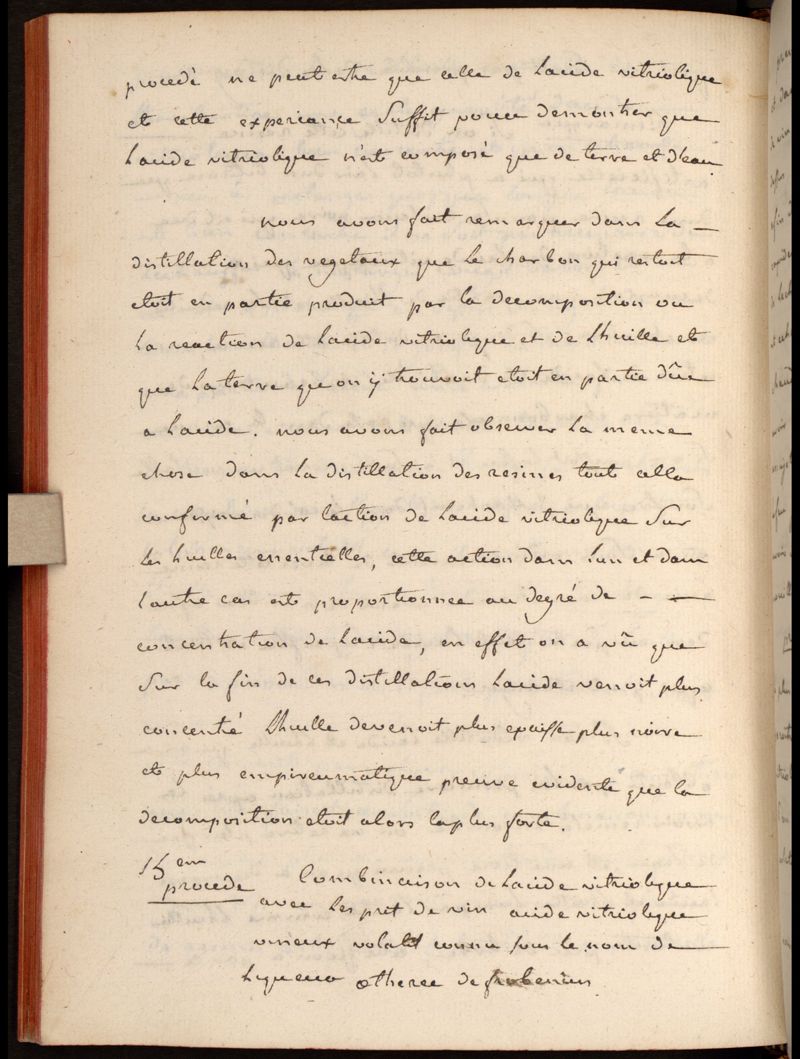 procedé ne peut estre que celle de lacide vitriolique
et cette experiançe suffit pour demontrer que
lacide vitriolique n'est composé que de terre et d'eau
nous avons fait remarquer dans la —
distillation des vegetaux que le charbon qui restoit
etoit en partie produit par la decomposition ou
la reaction de lacide vitriolique et de Lhuille et
que la terre qu on ij trouvoit etoit en partie dûe
a lacide. nous avons fait observer la meme
chose dans la distillation des resines tout cella
confirmé par laction de lacide vitriolique sur
les huilles essentielles, cette action dans lun et dans
lautre cas est proportionnee au degré de - —
concentration de lacide, en effet on a vû que
sur la fin de ces distillations lacide venoit plus
concentré Lhuille devenoit plus epaisse plus noire
et plus empireumatique preuve evidente que la
decomposition etoit alors la plus forte.
15em
procede Combinaison de lacide vitriolique
avec lesprit de vin acide vitriolique
vineux volatil connu sous le nom de —
liqueur etheree de frobenius